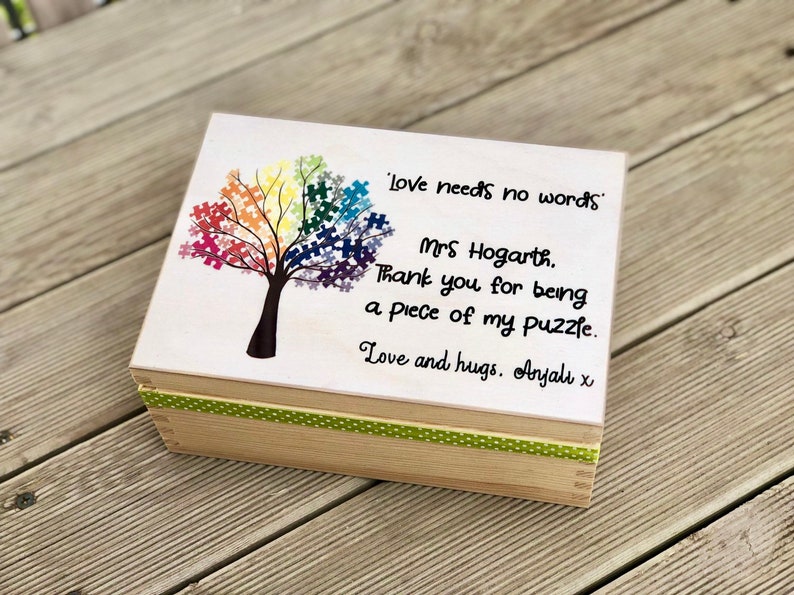 'Love needs no words'
Mrs Hogarth,
Thank you for being
a piece of my puzzle.
Love and hugs, Anjali x